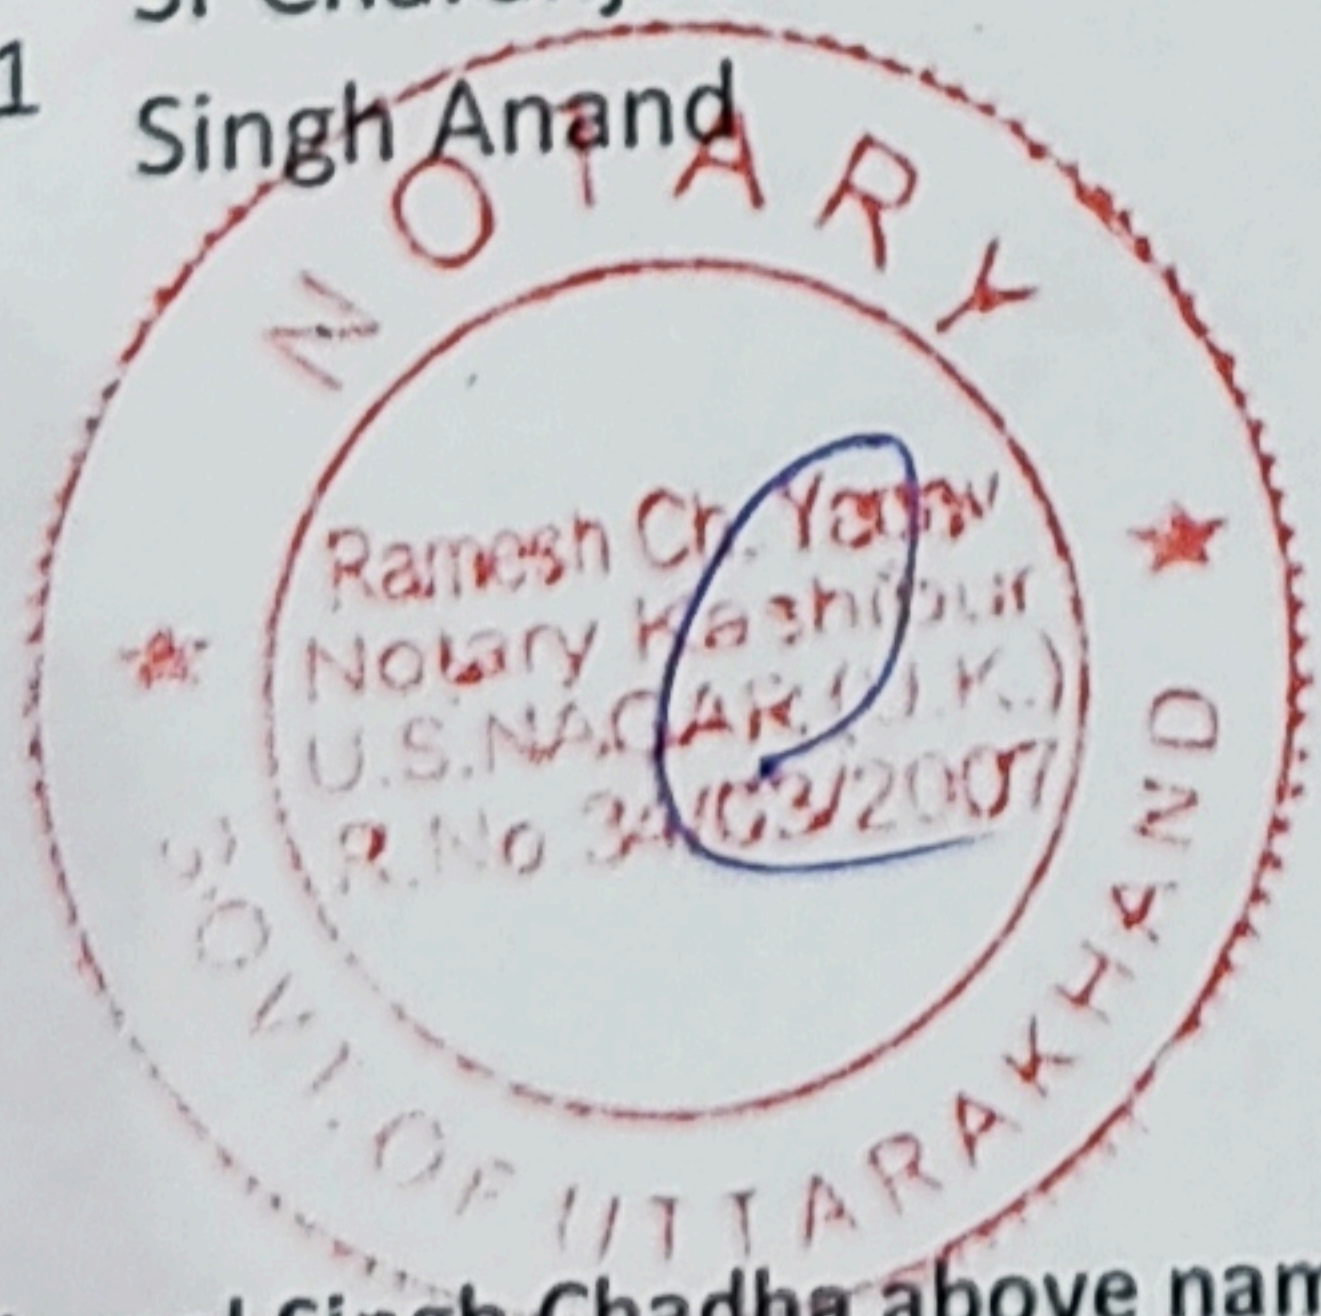 1
Singh Anand
NOTARY
Ramesh Ch. Yadav
Notary Kashipur
U.S.NAGAR (U.K.)
R.No 34/03/2007
GOVT. OF UTTARAKHAND
Singh Chadha above nam